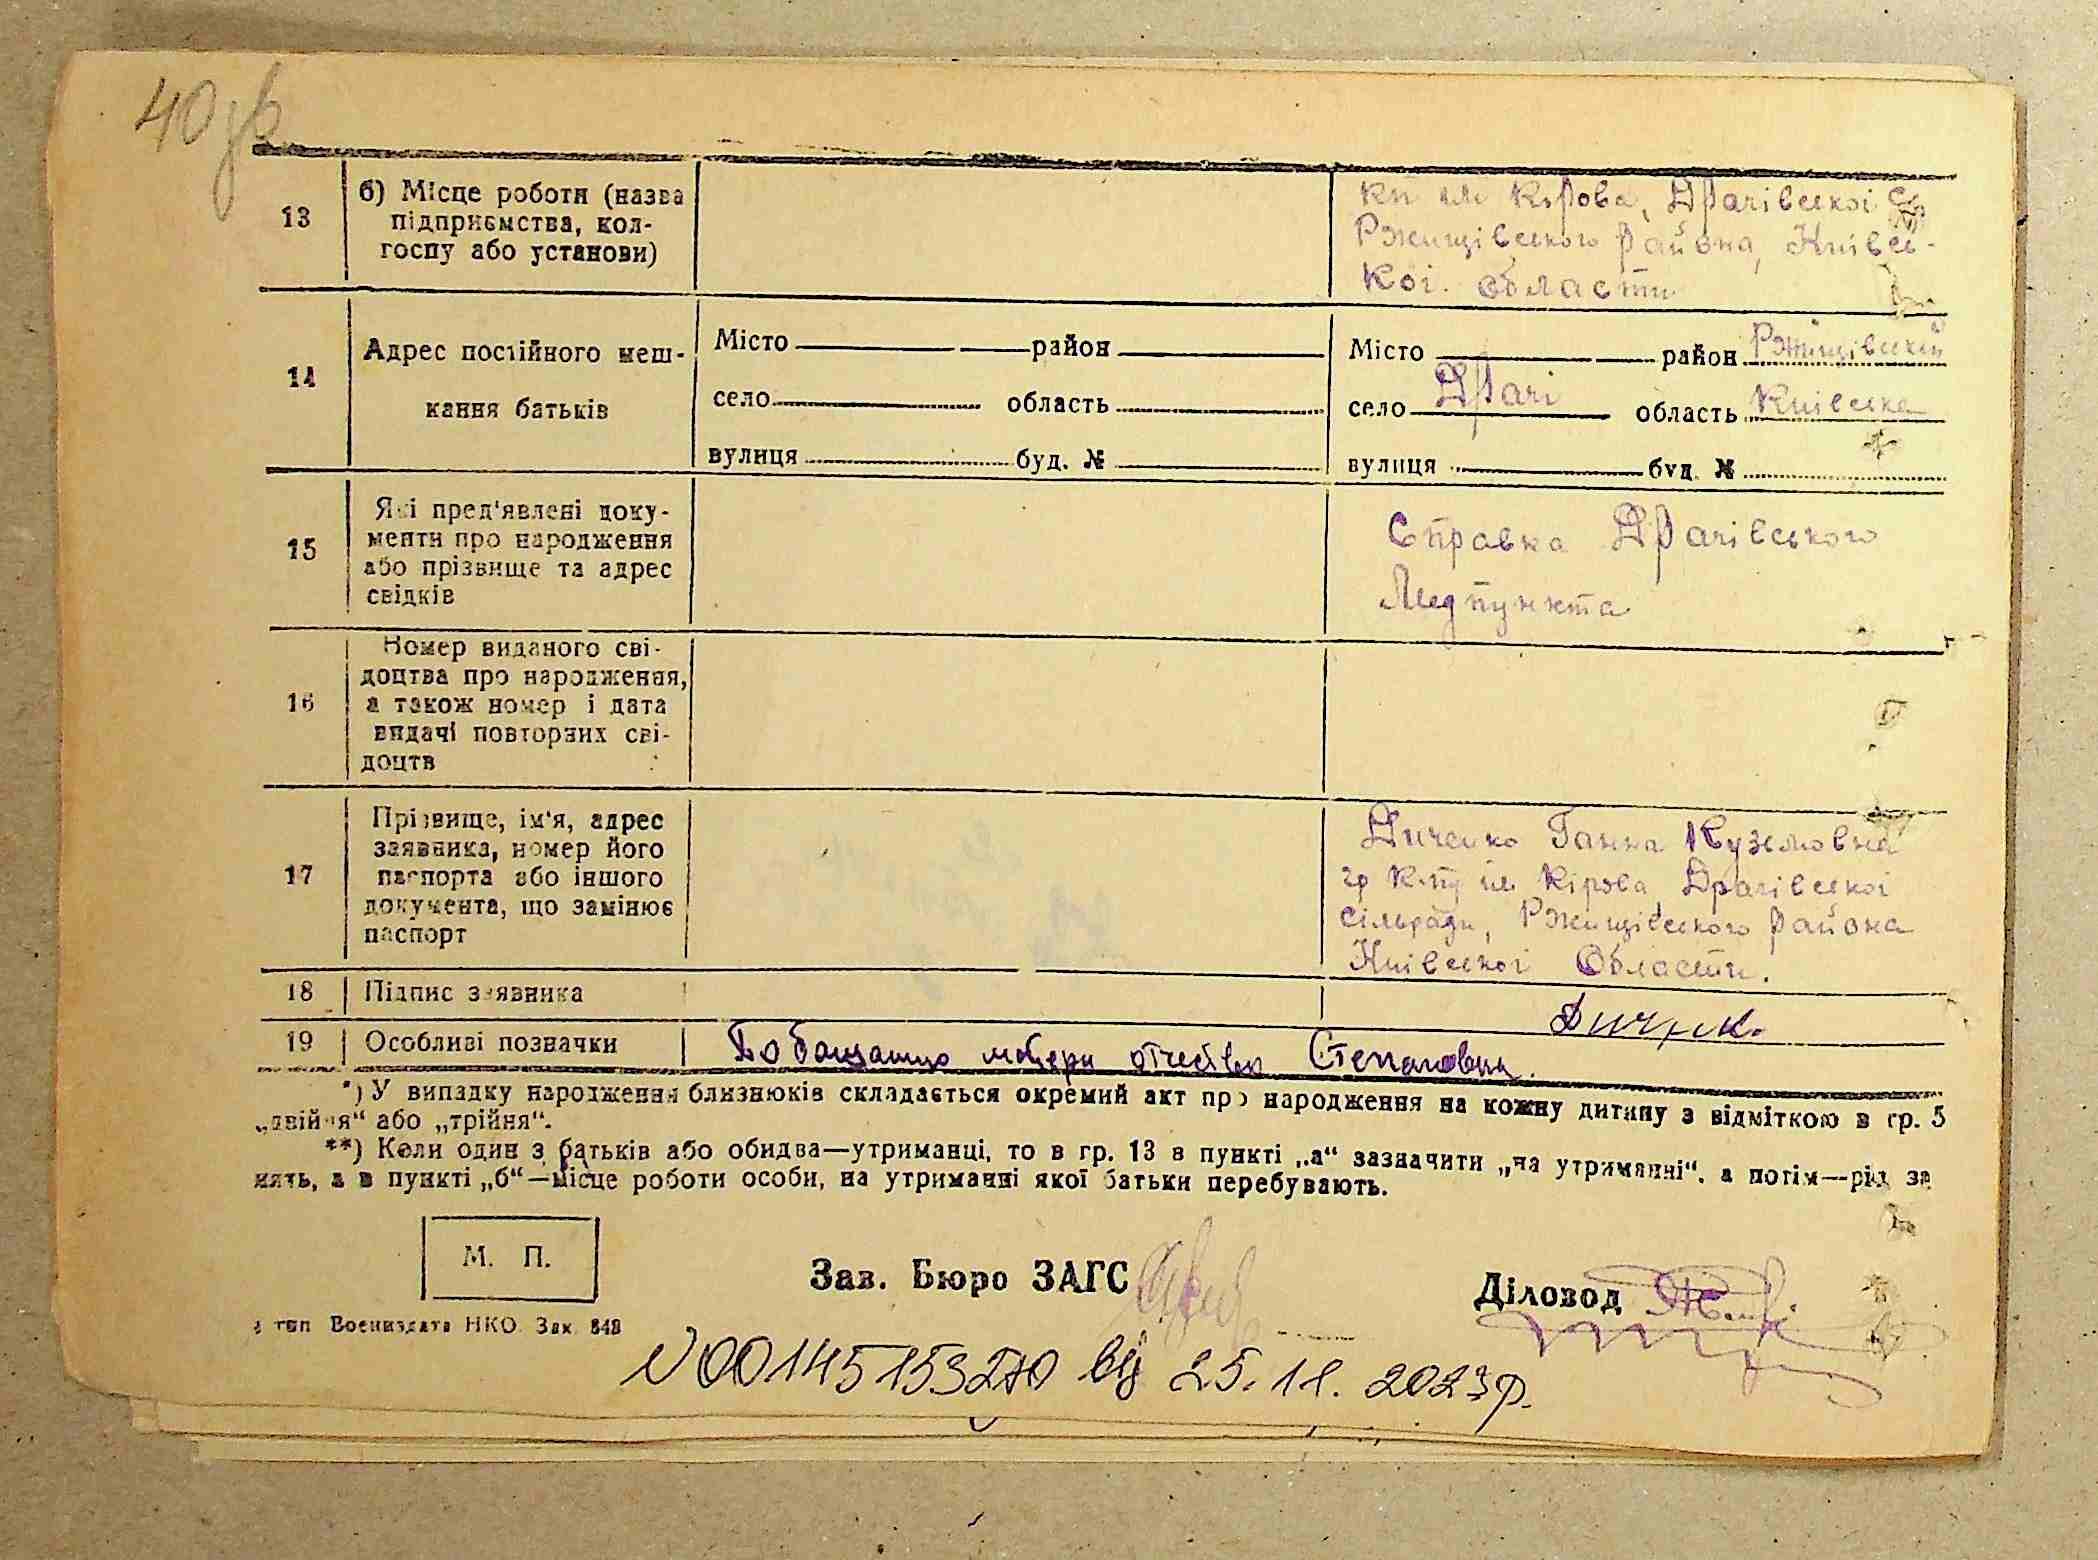 40зв
13
б) Місце роботи (назва
підприємства, кол-
госпу або установи)
кп им Кірова, Драчівської с/р
Ржищівського района, Київсь-
кої области
14
Адрес постійного меш-
кання батьків
Місто район
село область
вулиця буд. №
Місто район Ржищівский
село Драчі область Київська
вулиця буд. №
15
Які пред'явлені доку-
менти про народження
або прізвище та адрес
свідків
Справка Драчівського
Медпункта
16
Номер виданого сві-
доцтва про народження,
а також номер і дата
видачі повторних сві-
доцтв
17
Прізвище, ім'я, адрес
заявника, номер його
паспорта або іншого
документа, що замінює
паспорт
Диченко Ганна Кузьмовна
гр к-пу им Кірова Драчівської
сільради, Ржищівського района
Київської области.
18
Підпис заявника
19
Особливі позначки
По бащанию матери отчество Степановна.
*) У випадку народження близнюків складається окремий акт про народження на кожну дитину з відміткою в гр. 5
„двійня“ або „трійня“.
**) Коли один з батьків або обидва—утриманці, то в гр. 13 в пункті „а“ зазначити „на утриманні“, а потім—рід за
нять, а в пункті „б“—місце роботи особи, на утриманні якої батьки перебувають.
М. П.
Зав. Бюро ЗАГС
Діловод
тип Воениздата НКО. Зак. 848
N 00145153270 від 25.11.2023р.